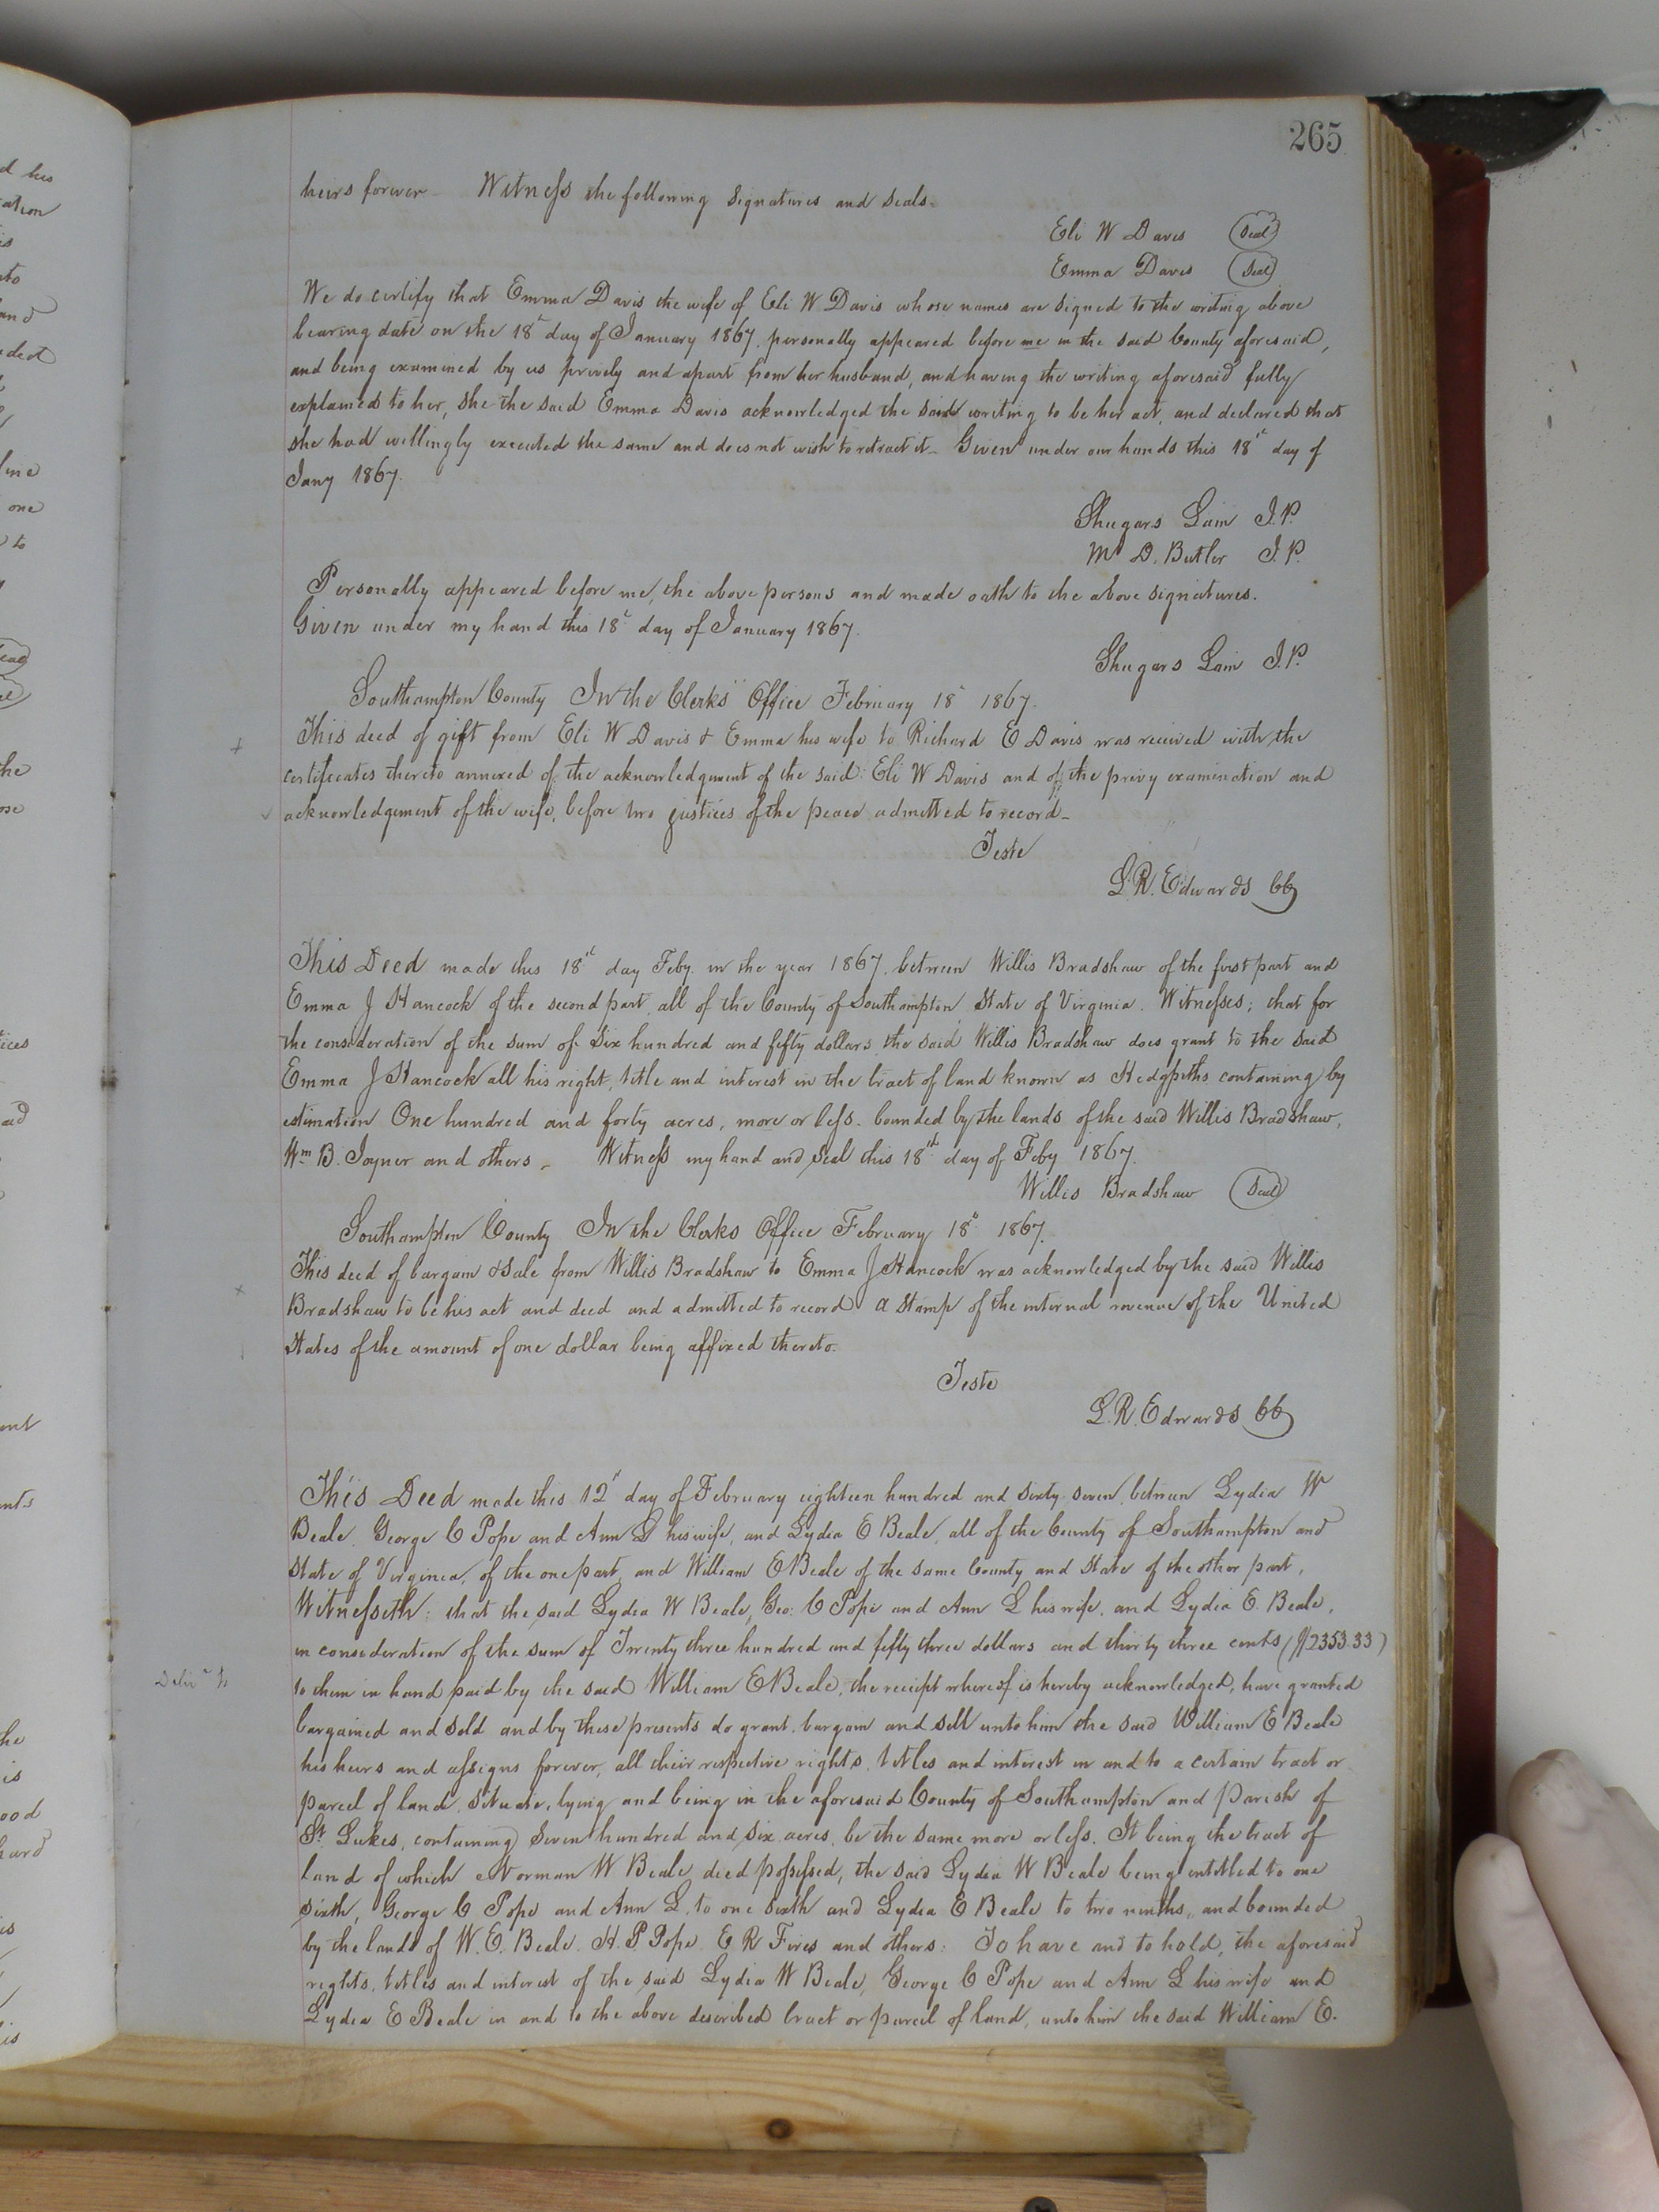 265
heirs forever Witness the following signatures and seals.
Eli W Davis (Seal)
Emma Davis (Seal)
We do certify that Emma Davis the wife of Eli W Davis whose names are signed to the writing above
bearing date on the 18th day of January 1867, personally appeared before me in the said County aforesaid,
and being examined by us privily and apart from her husband, and having the writing aforesaid fully
explained to her, she the said Emma Davis acknowledged the said writing to be her act, and declared that
she had willingly executed the same and does not wish to retract it. Given under our hands this 18th day of
Jany 1867.
Shugars Lain J.P.
M D. Butler J.P.
Personally appeared before me, the above persons and made oath to the above signatures.
Given under my hand this 18th day of January 1867.
Shugars Lain J.P.
Southampton County In the Clerks Office February 18th 1867.
This deed of gift from Eli W Davis & Emma his wife to Richard E Davis was received with the
certificates thereto annexed of the acknowledgment of the said Eli W Davis and of the privy examination and
acknowledgement of the wife, before two justices of the peace admitted to record
Teste
L.R. Edwards CC
This Deed made this 18th day Feby. in the year 1867, between Willis Bradshaw of the first part and
Emma J Hancock of the second part, all of the County of Southampton, State of Virginia. Witnesses; that for
the consideration of the sum of Six hundred and fifty dollars, the said Willis Bradshaw does grant to the said
Emma J Hancock all his right, title and interest in the tract of land known as Hedgpeths containing by
estimation One hundred and forty acres, more or less. bounded by the lands of the said Willis Bradshaw,
Wm B. Joyner and others. Witness my hand and seal this 18th day of Feby 1867.
Willis Bradshaw (Seal)
Southampton County In the Clerks Office February 18th 1867.
This deed of bargain & sale from Willis Bradshaw to Emma J Hancock was acknowledged by the said Willis
Bradshaw to be his act and deed and admitted to record a stamp of the internal revenue of the United
States of the amount of one dollar being affixed thereto.
Teste
L.R. Edwards CC
This Deed made this 12th day of February eighteen hundred and sixty seven, between Lydia W
Beale, George C Pope and Ann L his wife, and Lydia E Beale, all of the County of Southampton and
State of Virginia, of the one part, and William E Beale of the same County and State of the other part,
Witnesseth: that the said Lydia W Beale, Geo: C Pope and Ann L his wife, and Lydia E. Beale,
in consideration of the sum of Twenty three hundred and fifty three dollars and thirty three cents ($2353.33)
to them in hand paid by the said William E Beale, the receipt whereof is hereby acknowledged, have granted
bargained and sold and by these presents do grant, bargain and sell unto him the said William E Beale
his heirs and assigns forever, all their respective rights, titles and interest in and to a certain tract or
parcel of land, situate, lying and being in the aforesaid County of Southampton and Parish of
St. Lukes, containing Seven hundred and six acres, be the same more or less. It being the tract of
land of which Norman W Beale died possessed, the said Lydia W Beale being entitled to one
sixth, George C Pope and Ann L. to one sixth and Lydia E Beale to two ninths, and bounded
by the lands of W. E. Beale. H. P Pope E R and others: To have and to hold, the aforesaid
rights, titles and interest of the said Lydia W Beale, George C Pope and Ann L his wife and
Lydia E Beale in and to the above described tract or parcel of land, unto him the said William E.